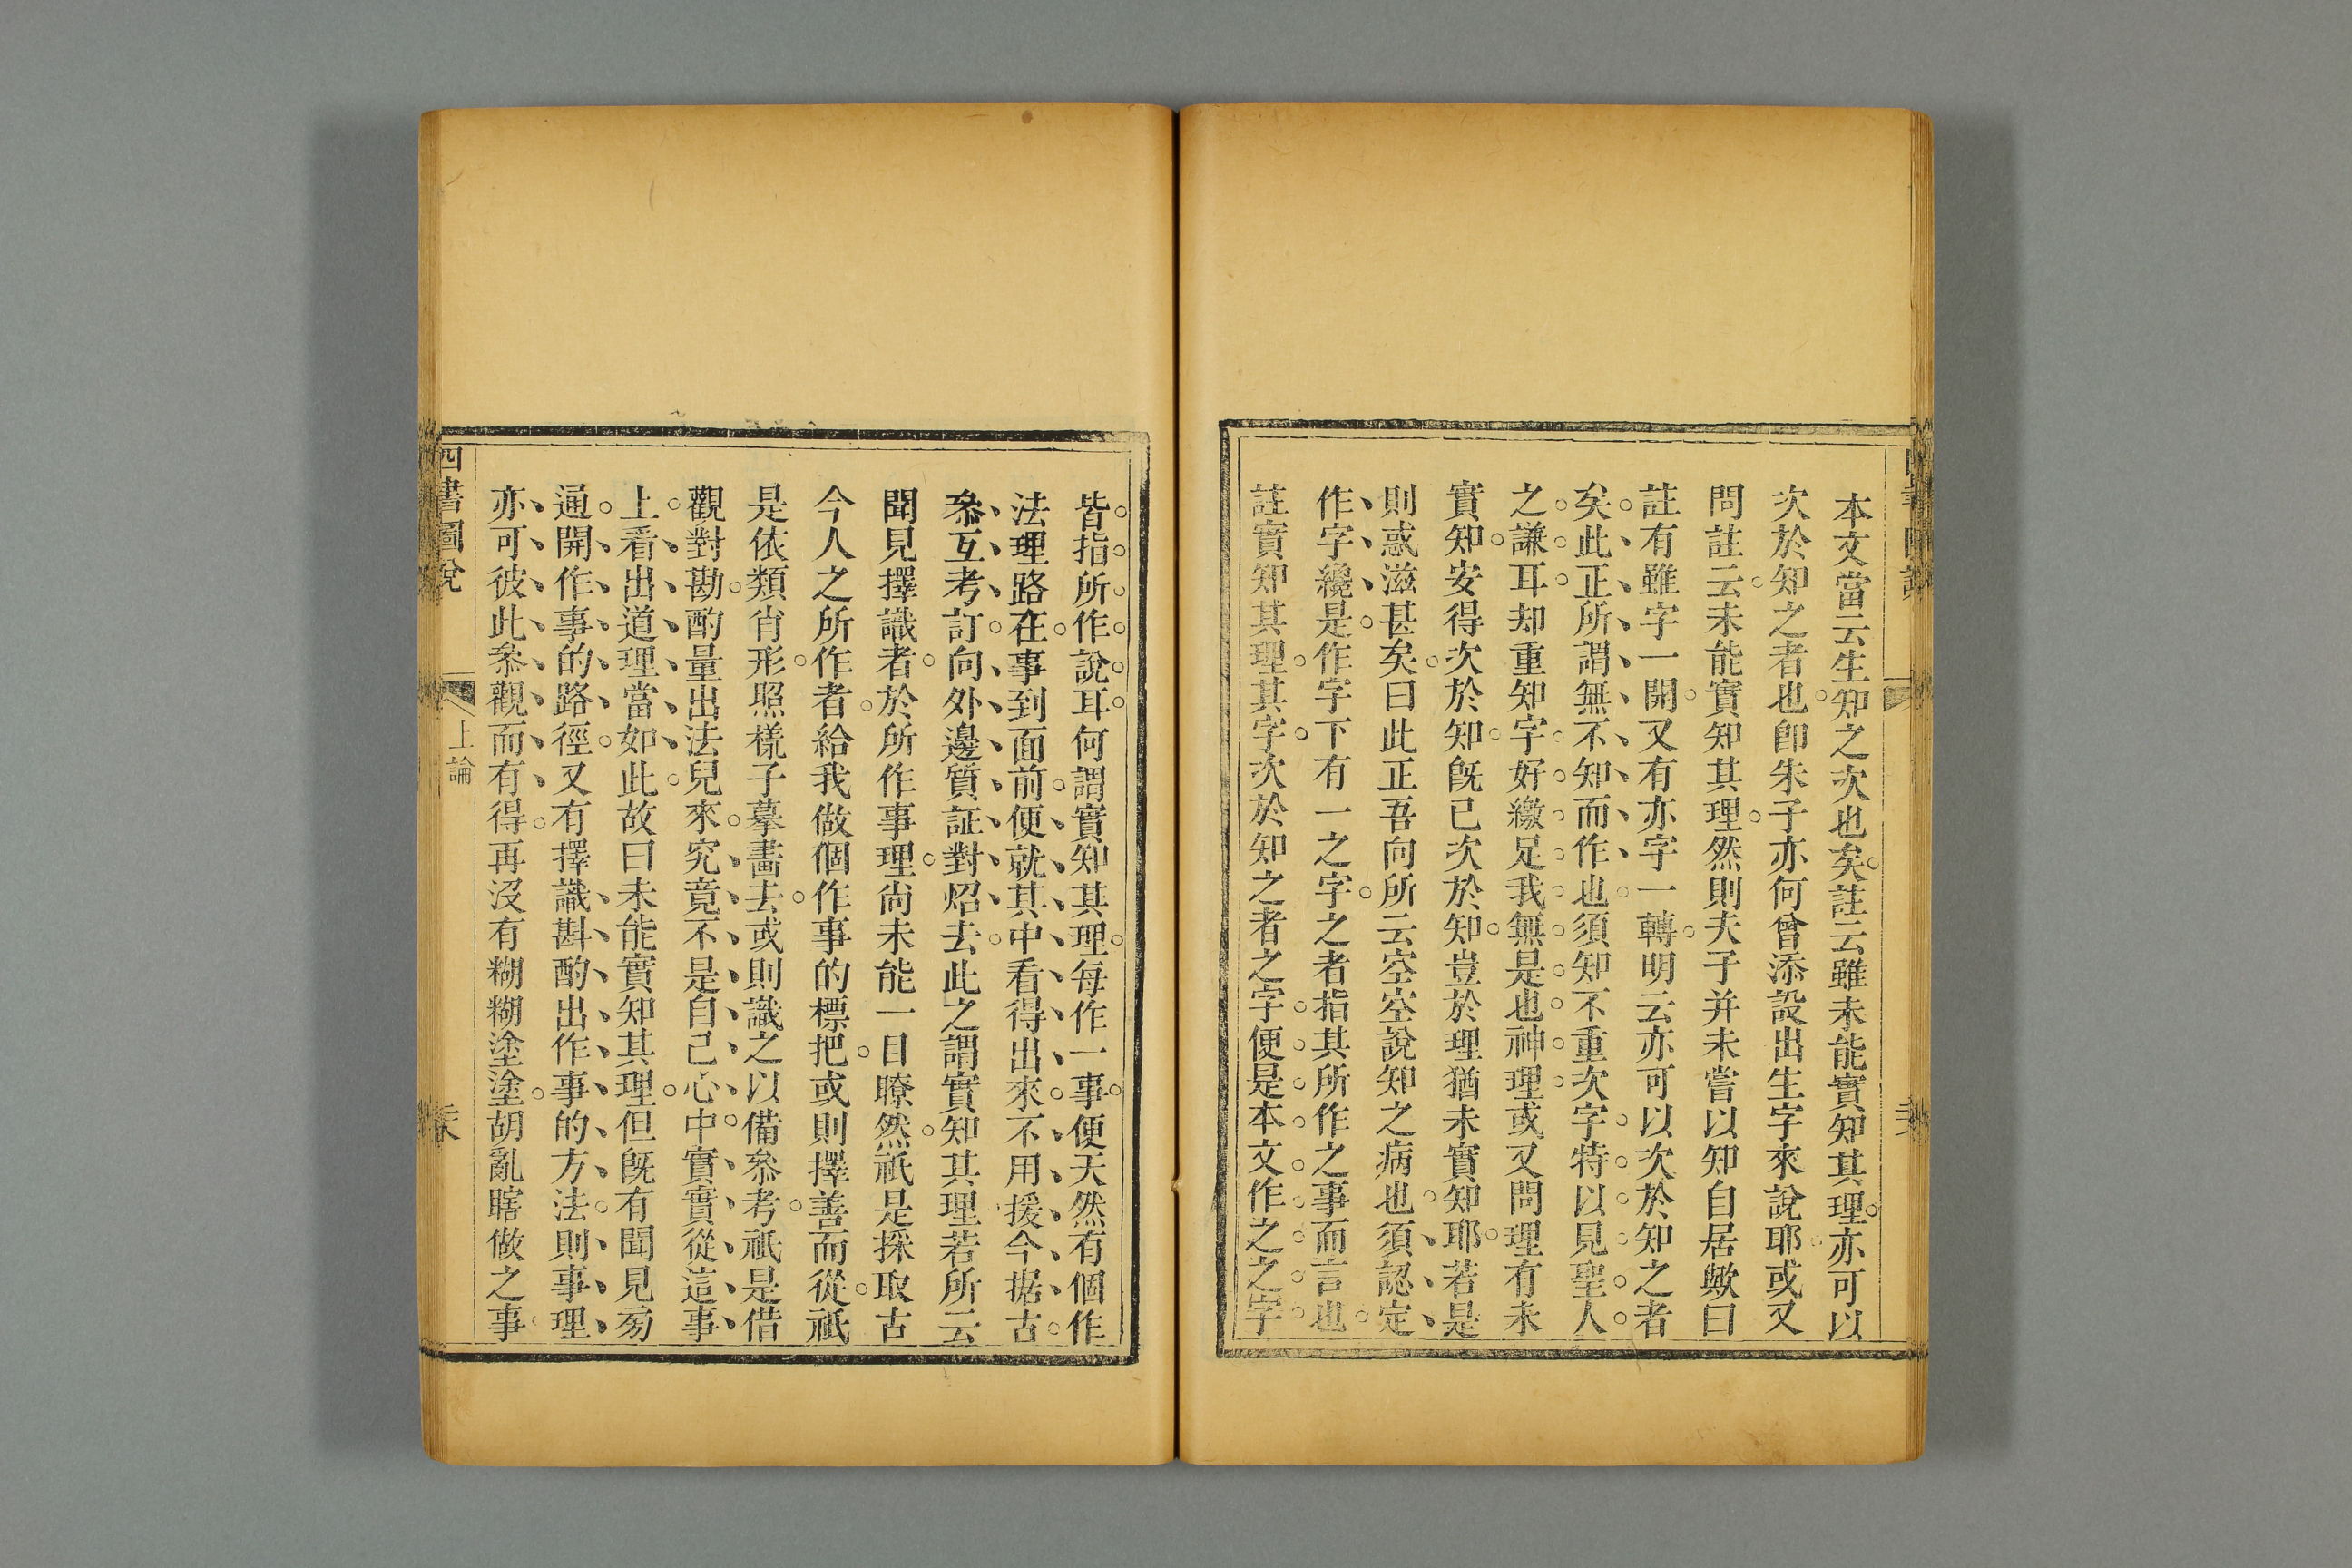 本文當云生知之次也矣註云雖未能實知其理亦可以
次於知之者也卽朱子亦何曾添設出生字來說耶或又
問註云未能實知其理然則夫子并未嘗以知自居歟曰
註有雖字一開又有亦字一轉明云亦可以次於知之者
矣此正所謂無不知而作也須知不重次字特以見聖人
之謙耳却重知字好繳足我無是也神理或又問理有未
實知安得次於知旣已次於知豈於理猶未實知耶若是
則惑滋甚矣曰此正吾向所云空空說知之病也須認定
作字纔是作字下有一之字之者指其所作之事而言也
註實知其理其字次於知之者之字便是本文作之之字
皆指所作說耳何謂實知其理每作一事便天然有個作
法理路在事到面前便就其中看得出來不用援今据古
叅互考訂向外邊質証對炤去此之謂實知其理若所云
聞見擇識者於所作事理尙未能一目瞭然祇是採取古
今人之所作者給我做個作事的標把或則擇善而從祇
是依類肖形照樣子摹畵去或則識之以備叅考祇是借
觀對勘酌量出法兒來究竟不是自己心中實實從這事
上看出道理當如此故曰未能實知其理但旣有聞見爲
通開作事的路徑又有擇識斟酌出作事的方法則事理
亦可彼此叅觀而有得再沒有糊糊塗塗胡亂瞎做之事
四書圖說
上論